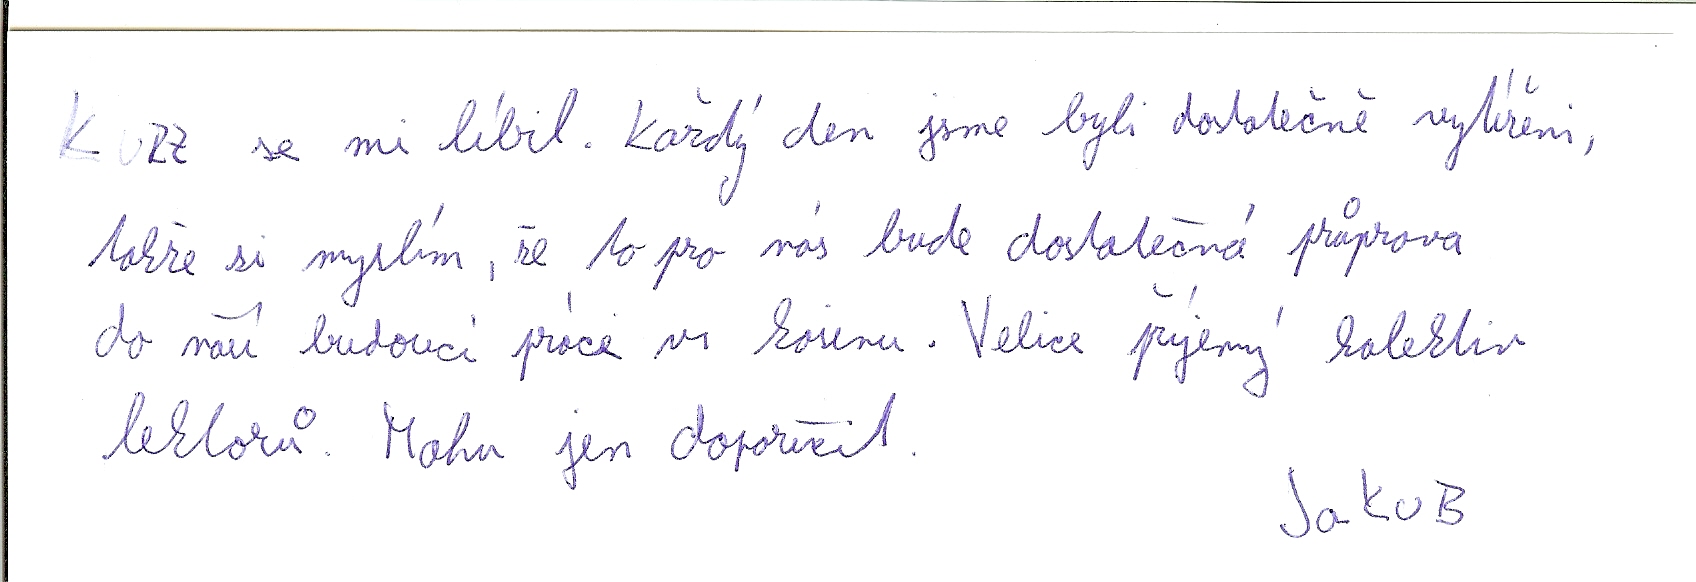 KURZ se mi líbil. Každý den jsme byli dostatečně vytíženi,
takže si myslím, že to pro nás bude dostatečná průprava
do naší budoucí práce v kasinu. Velice příjemný kolektiv
lektorů. Mohu jen doporučit.
JakUB